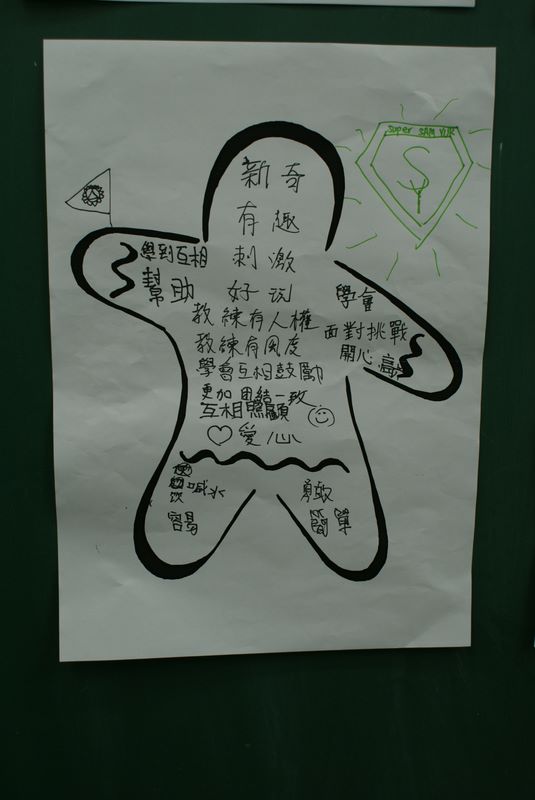 Super SAM YUK
SY
新奇
有趣
刺激
好玩
學到互相
幫助
教練有人權
教練有風度
學會互相鼓勵
更加团結一致
互相照顧
愛心
學會
面對挑戰
開心
容易
勇敢
簡單